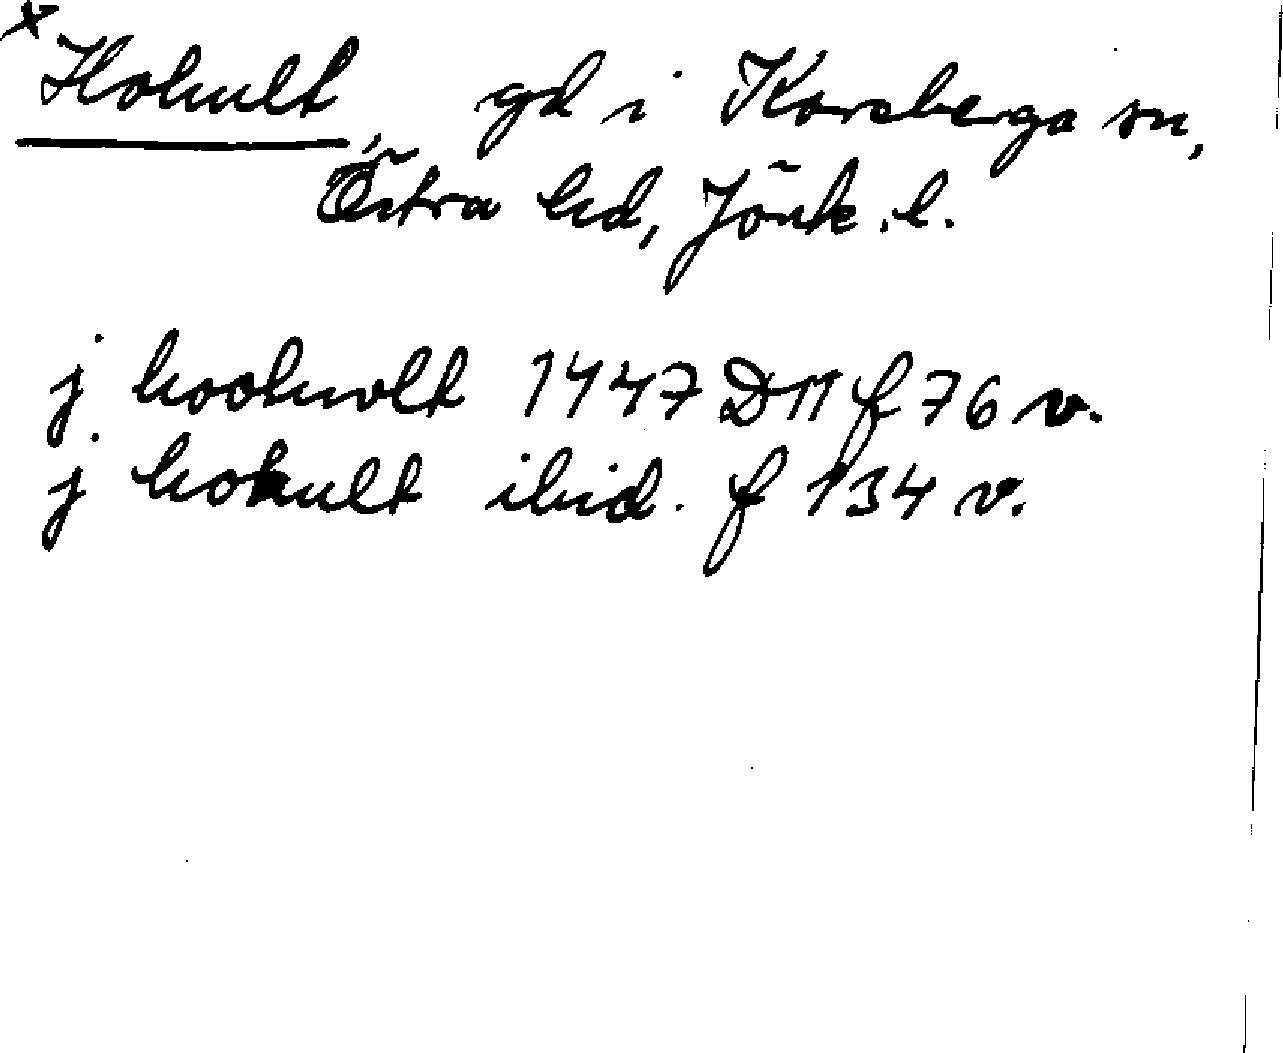 x
Hohult, gd i Korsberga sn,
Östra hd, Jönk. l.
j hoohwlt 1447 D11 f 76 v.
j hohult ibid. f 134 v.